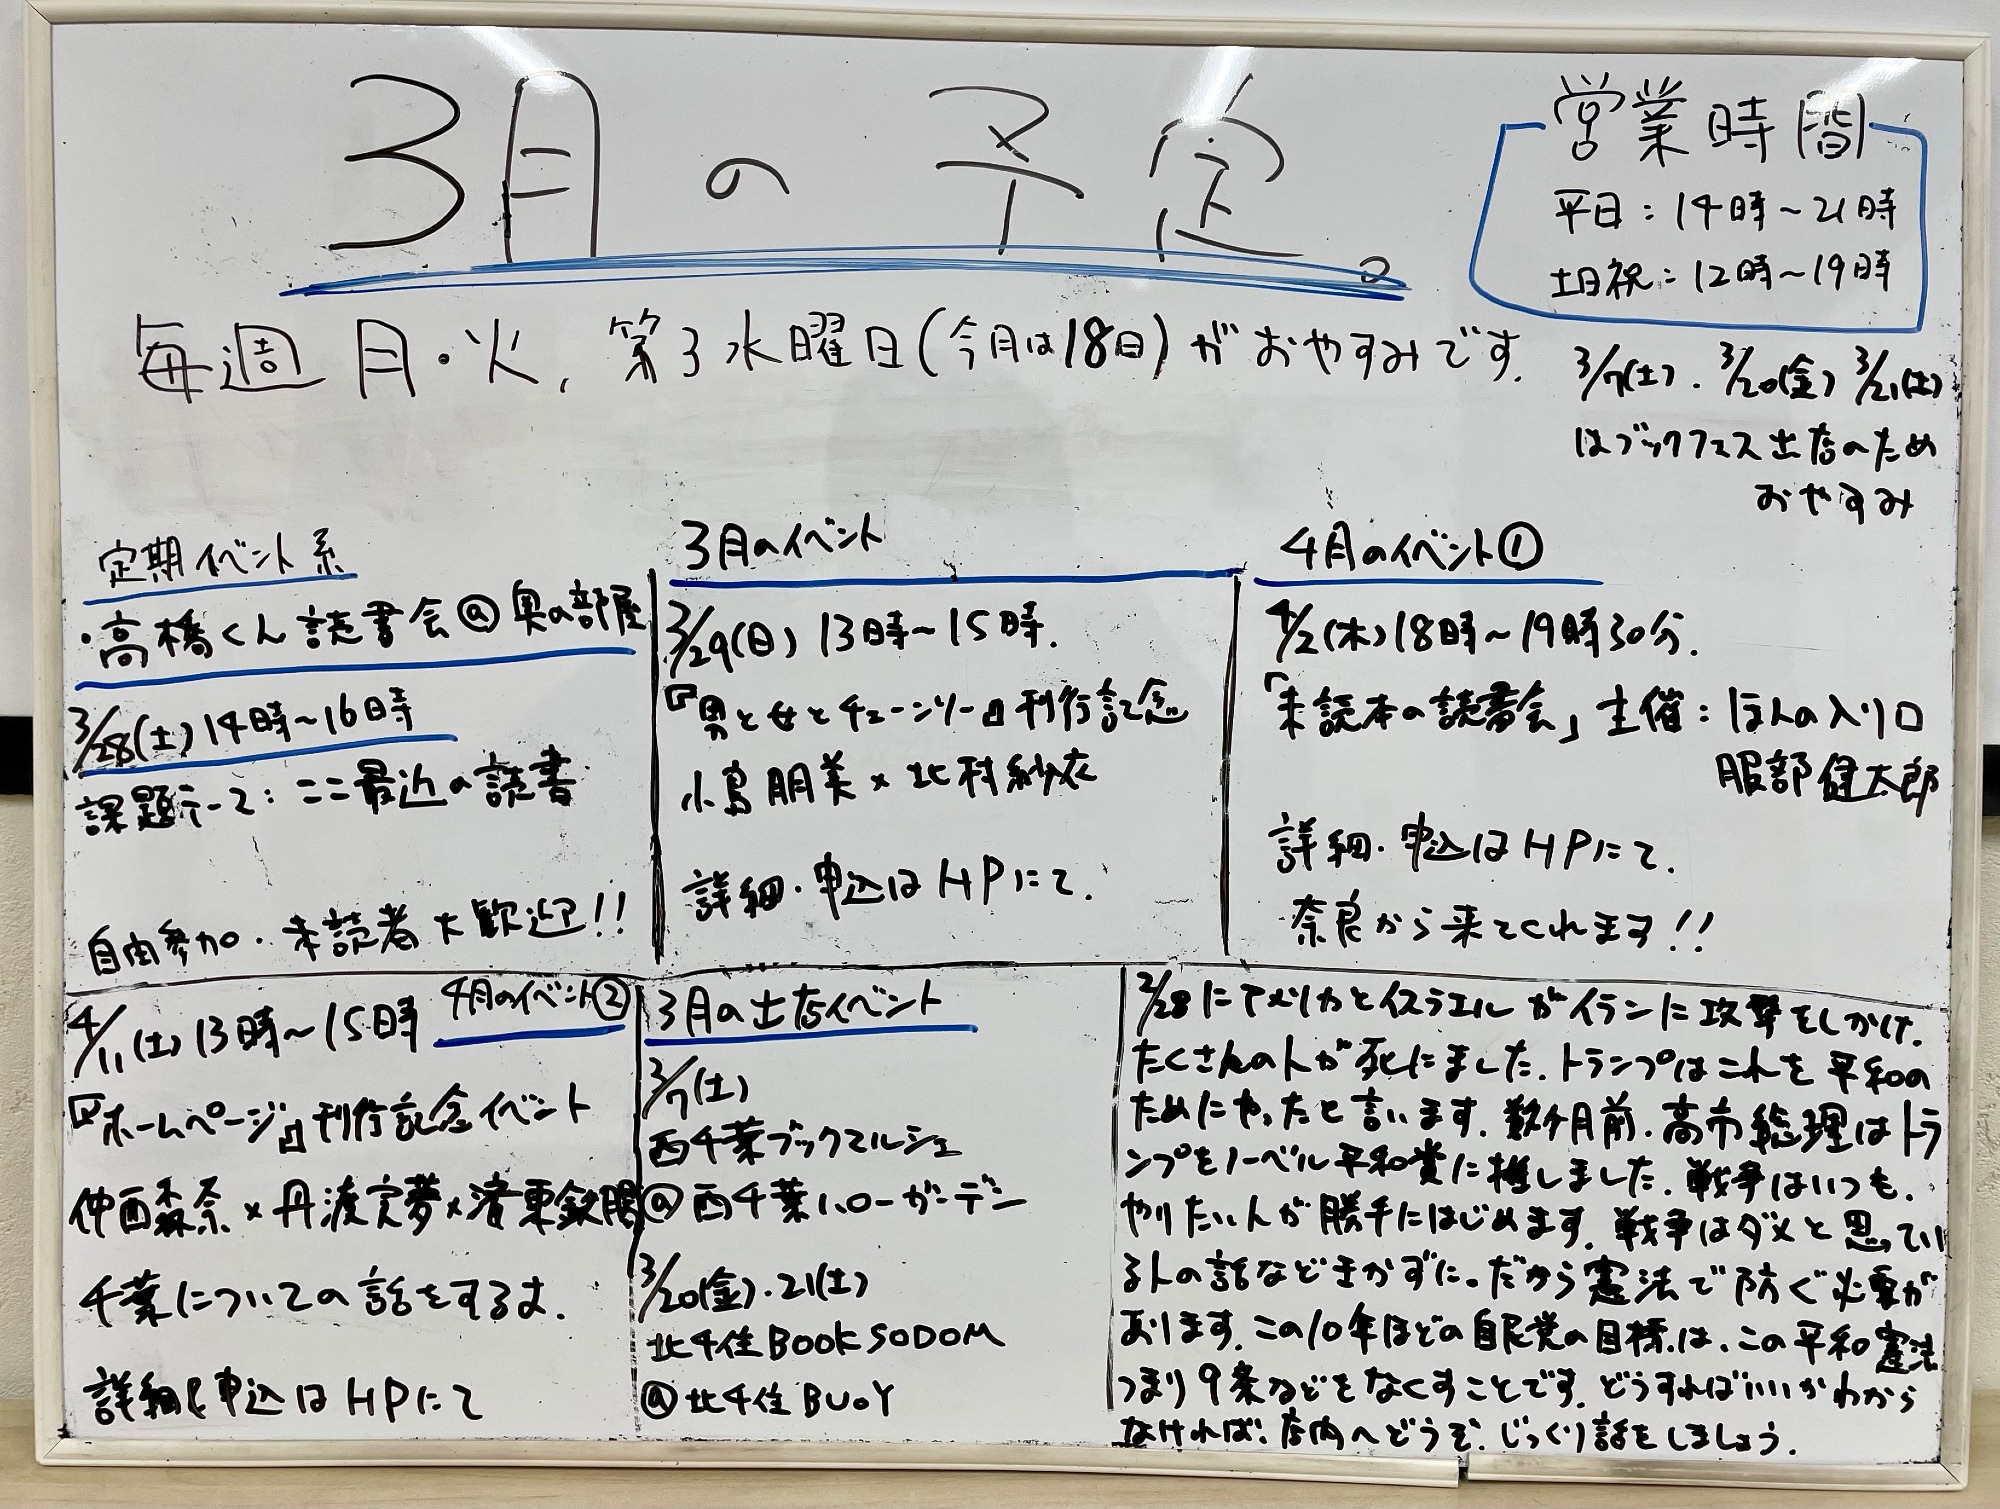 3月の予定。
営業時間
平日：14時～21時
土日祝：12時～19時
毎週月・火、第3水曜日(今月は18日)がおやすみです。
3/7(土)・3/20(金) 3/21(土)
はブックフェス出店のため
おやすみ
定期イベント系
・高橋くん読書会@奥の部屋
3/28(土)14時～16時
課題テーマ：ここ最近の読書
自由参加・未読者大歓迎!!
3月のイベント
3/29(日) 13時～15時.
『男と女とチェーンソー』刊行記念
小島朋美×北村紗衣
詳細・申込はHPにて.
4月のイベント①
4/2(木)18時～19時30分.
「未読本の読書会」主催：ほんの入り口
服部健太郎
詳細・申込はHPにて.
奈良から来てくれます!!
4月のイベント②
4/11(土)13時～15時
『ホームページ』刊行記念イベント
仲西森奈×丹渡実夢×東鉄
千葉についての話をするよ.
詳細と申込はHPにて
3月の出店イベント
3/7(土)
西千葉ブックマルシェ
@西千葉ハローガーデン
3/20(金)・21(土)
北千住BOOK SODOM
@北千住BUoY
2/28にアメリカとイスラエルがイランに攻撃をしかけ、
たくさんの人が死にました。トランプはこれを平和の
ためにやったと言います。数ヶ月前、高市総理はトラ
ンプをノーベル平和賞に推しました。戦争はいつも、
やりたい人が勝手にはじめます。戦争はダメと思ってい
る人の話などきかずに。だから憲法で防ぐ必要が
あります。この10年ほどの自民党の目標は、この平和憲法
つまり9条などをなくすことです。どうすればいいかわから
なければ、店内へどうぞ。じっくり話をしましょう。